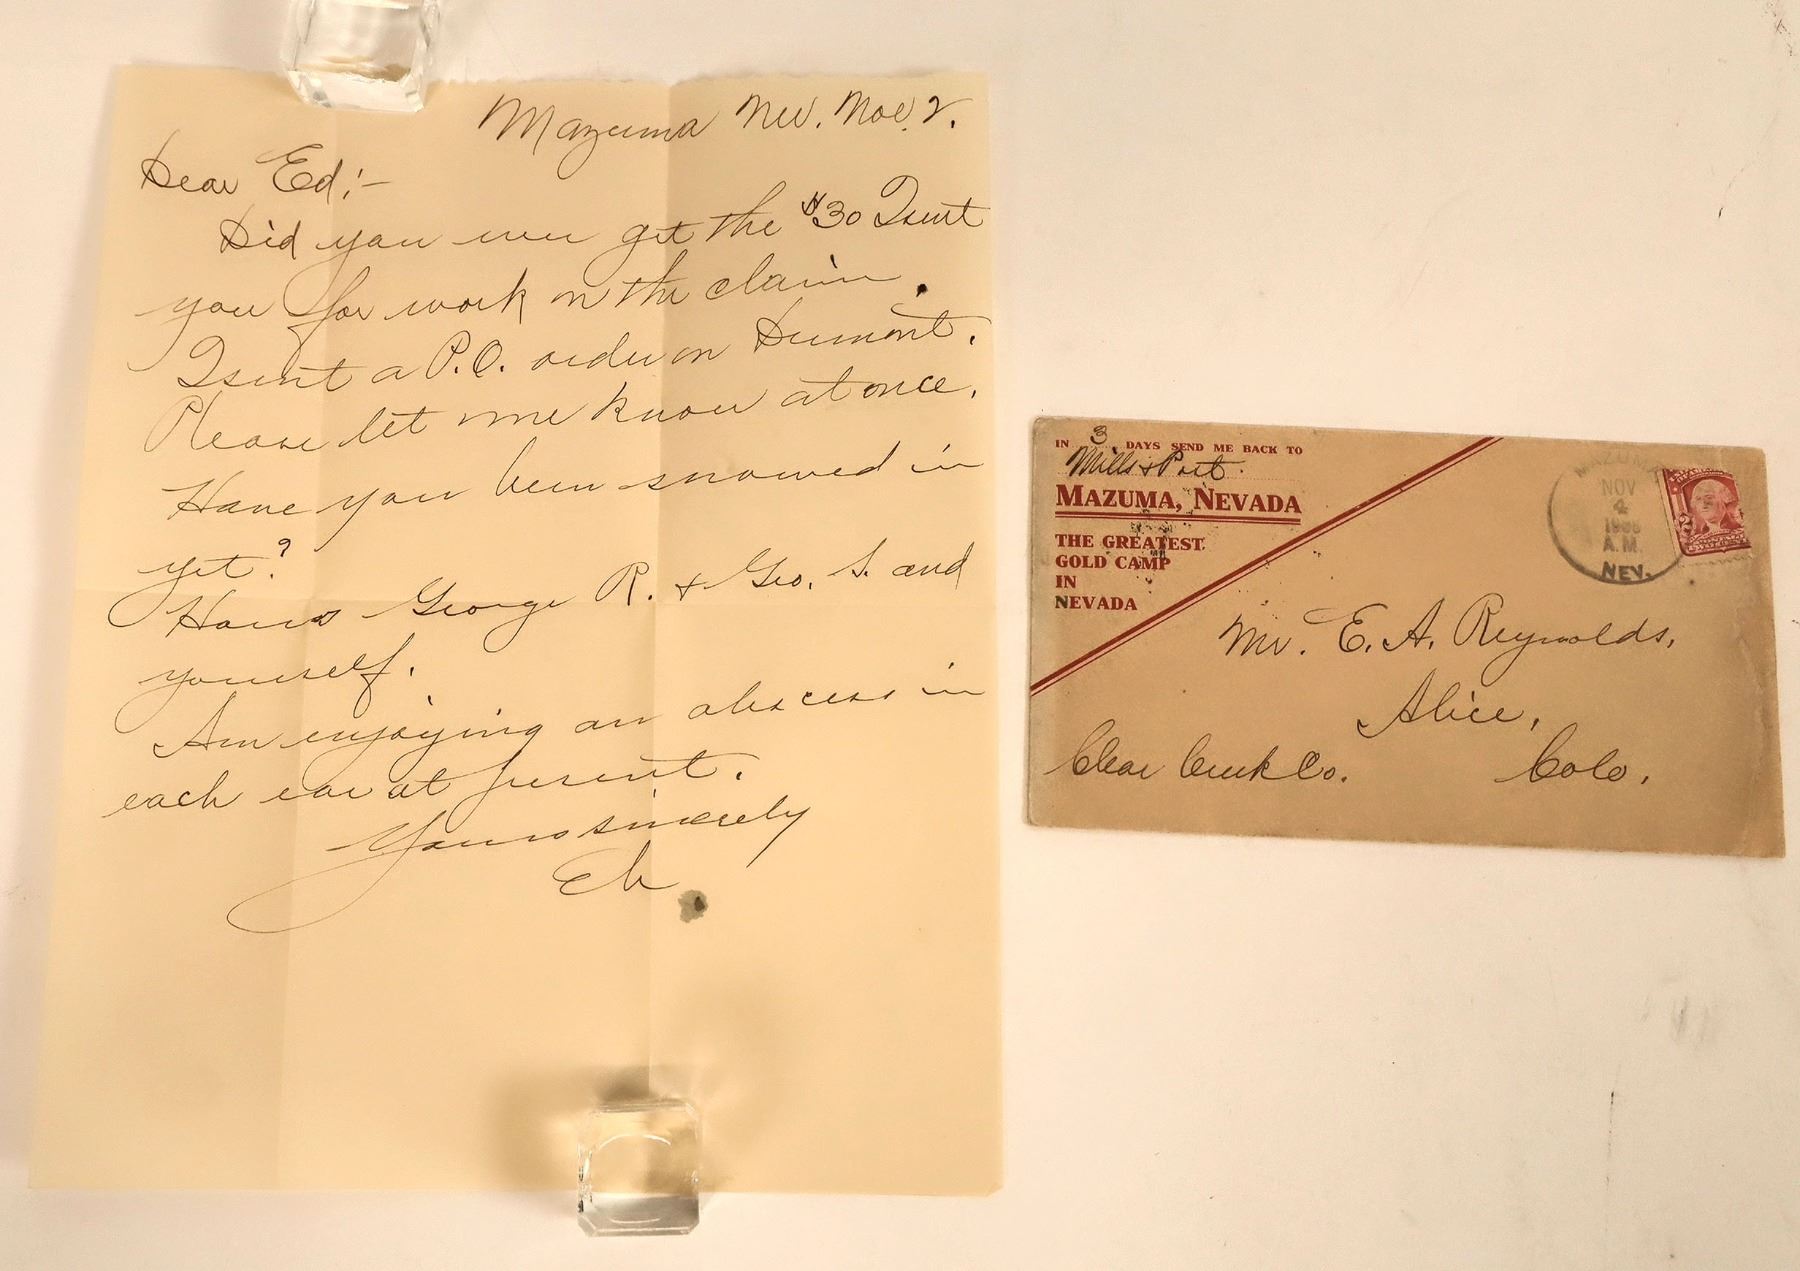 Mazuma Nev. Nov. 2.
Dear Ed:-
Did you ever get the $30 I sent
you for work on the claim.
I sent a P.O. order on Dumont.
Please let me know at once.
Have you been snowed in
yet?
Hows George R. + Geo. S. and
yourself.
Am enjoying an abscess in
each ear at present.
Yours sincerely
Eb
IN 3 DAYS SEND ME BACK TO
Mills + Port
MAZUMA, NEVADA
THE GREATEST
GOLD CAMP
IN
NEVADA
MAZUMA
NOV
4
A.M.
NEV.
2
Mr. E. A. Reynolds,
Alice,
Clear Creek Co. Colo.